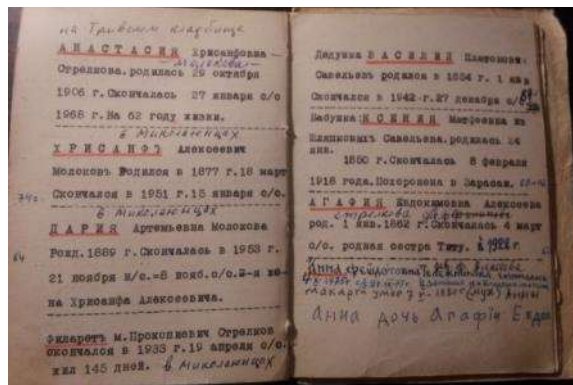 на Гривском кладбище
АНАСТАСИЯ Хрисанфовна
Молокова
Стрелкова.родилась 29 октября
1906 г.Скончалась 27 января с/с
1968 г.На 62 году жизни.
в Миколаюнцах
ХРИСАНФЪ Алексеевич
Молоков Родился в 1877 г.18 март
74г. Скончался в 1951 г.15 января с/с.
в Миколаюнцах
ДАРИЯ Артемьевна Молокова
64 Рожд.1889 г.Скончалась в 1953 г.
21 ноября н/с.=8 нояб.с/с.2-я же-
на Хрисанфа Алексеевича.
Филаретъ м.Прокопиевич Стрелков
скончался в 1933 г.19 апреля с/с.
жил 145 дней. в Миколаюнцах
Дедушка ВАСИЛИЙ Платонов.
Савельев родился в 1854 г. 1 янв
Скончался в 1942 г.27 декабря с/с
Бабушка: КСЕНИЯ Матфеевна из
Шляпковых Савельева.родилась 24
янв.
1850 г.Скончалась 8 февраля
1918 года.Похоронена в Зарасах.
АГАФИЯ Евдокимовна Алексеева
стрелкова
род. 1 янв.1862 г.Скончалась 4 март
с/с. родная сестра Титу. в 1922 г
Анна
Макарт умер (муж) Анны
Анна дочь Агафіи Евдок